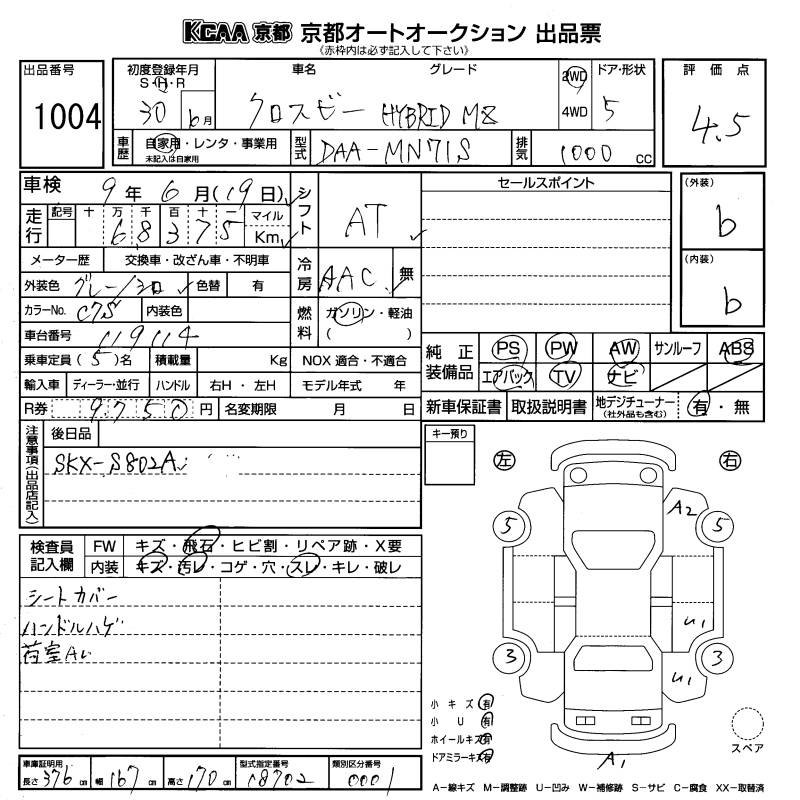 KCAA 京都 京都オートオークション 出品票
《赤枠内は必ず記入して下さい》
出品番号
1004
初度登録年月
S・H・R
30 6月
車名
クロスビー
グレード
HYBRID MZ
2WD
4WD
ドア・形状
5
評価点
4.5
車歴
自家用・レンタ・事業用
未記入は自家用
型式
DAA-MN71S
排気
1000 cc
車検 9年 6月(19日)
シフト
AT
走行
記号 十 万 千 百 十 一
6 8 3 7 5
マイル
Km
メーター歴 交換車・改ざん車・不明車
冷房
AAC
無
外装色 グレー/シロ 色替 有
カラーNo. C7S 内装色
燃料
ガソリン・軽油
( )
車台番号 119114
乗車定員(5)名 積載量 Kg NOX 適合・不適合
輸入車 ディーラー・並行 ハンドル 右H・左H モデル年式 年
R券 9750円 名変期限 月 日
セールスポイント
(外装)
b
(内装)
b
純正装備品
PS PW AW サンルーフ ABS
エアバック TV ナビ
新車保証書 取扱説明書 地デジチューナー
(社外品も含む)
有・無
注意事項(出品店記入)
後日品
SKX-S802A
キー預り
左
右
検査員記入欄
FW キズ・飛石・ヒビ割・リペア跡・X要
内装 キズ・汚レ・コゲ・穴・スレ・キレ・破レ
シートカバー
ハンドルハゲ
荷室A
A2
5 5
U1
3 3
U1
A1
小キズ 有
小U 有
ホイールキズ 有
ドアミラーキズ 有
スペア
車庫証明用
長さ 376cm 幅 167cm 高さ 170cm
型式指定番号
18702
類別区分番号
0001
A-線キズ M-調整跡 U-凹み W-補修跡 S-サビ C-腐食 XX-取替済